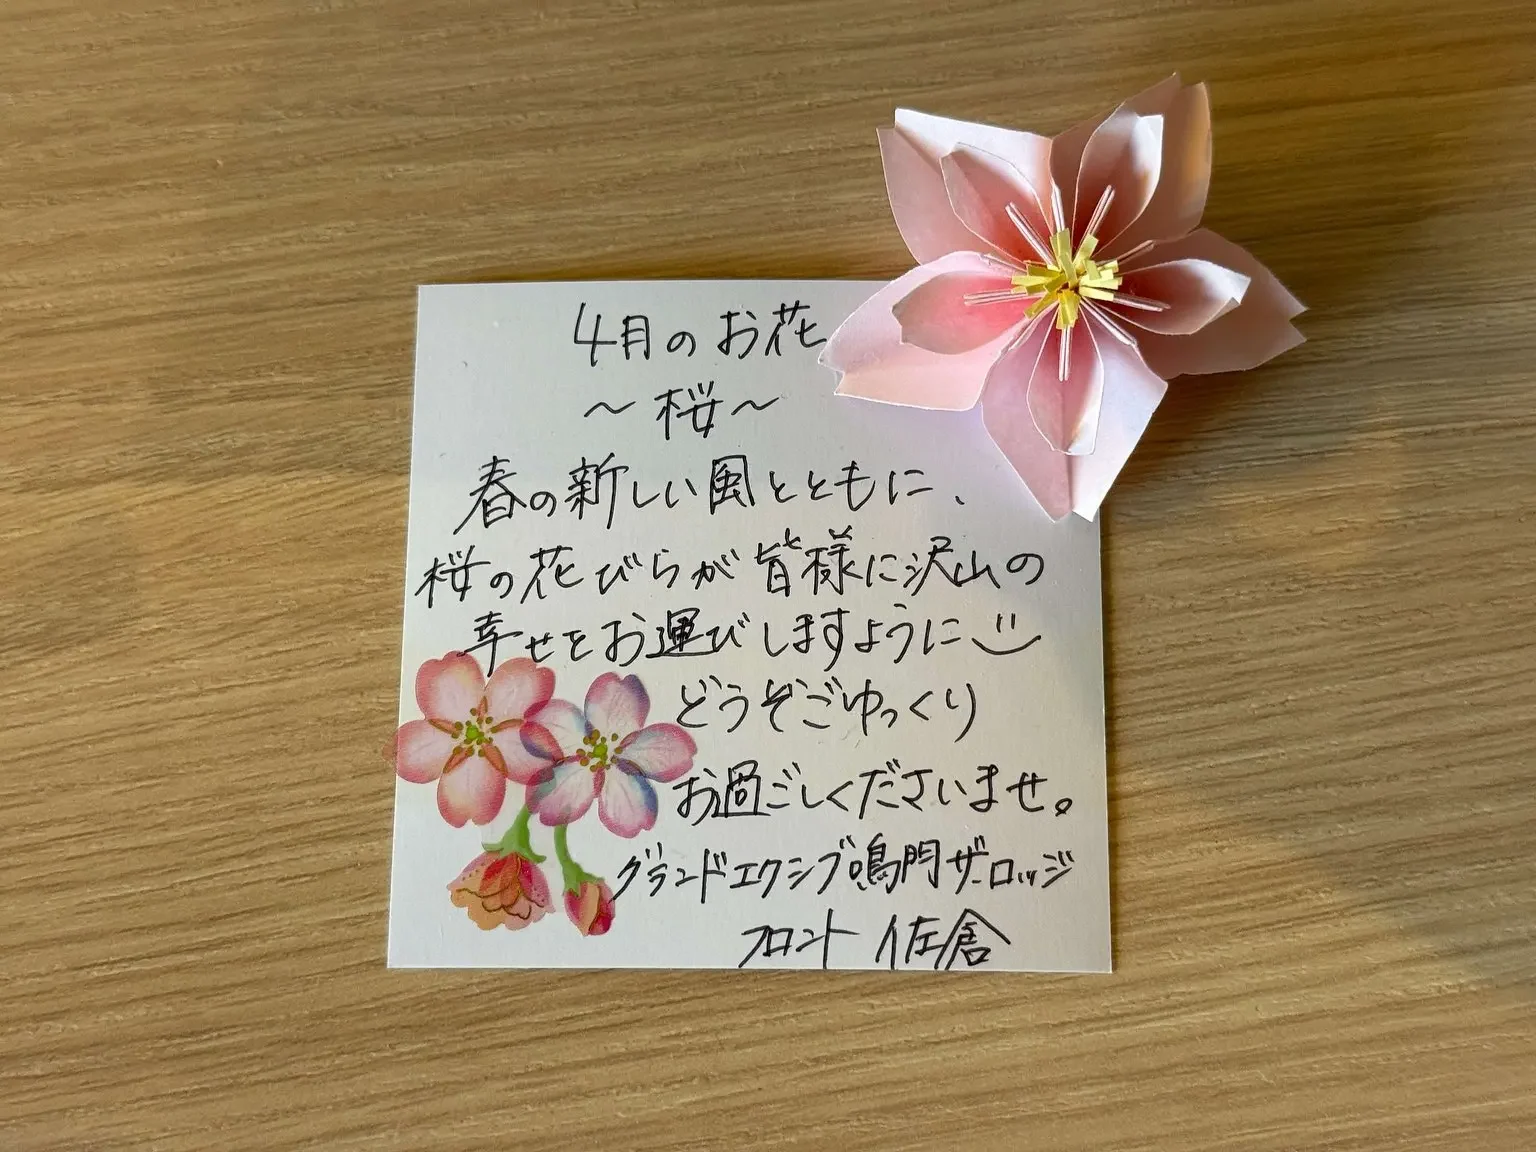 4月のお花
～桜～
春の新しい風とともに、
桜の花びらが皆様に沢山の
幸せをお運びしますように
どうぞごゆっくり
お過ごしくださいませ。
グランドエクシブ鳴門ザ・ロッジ
フロント 佐倉